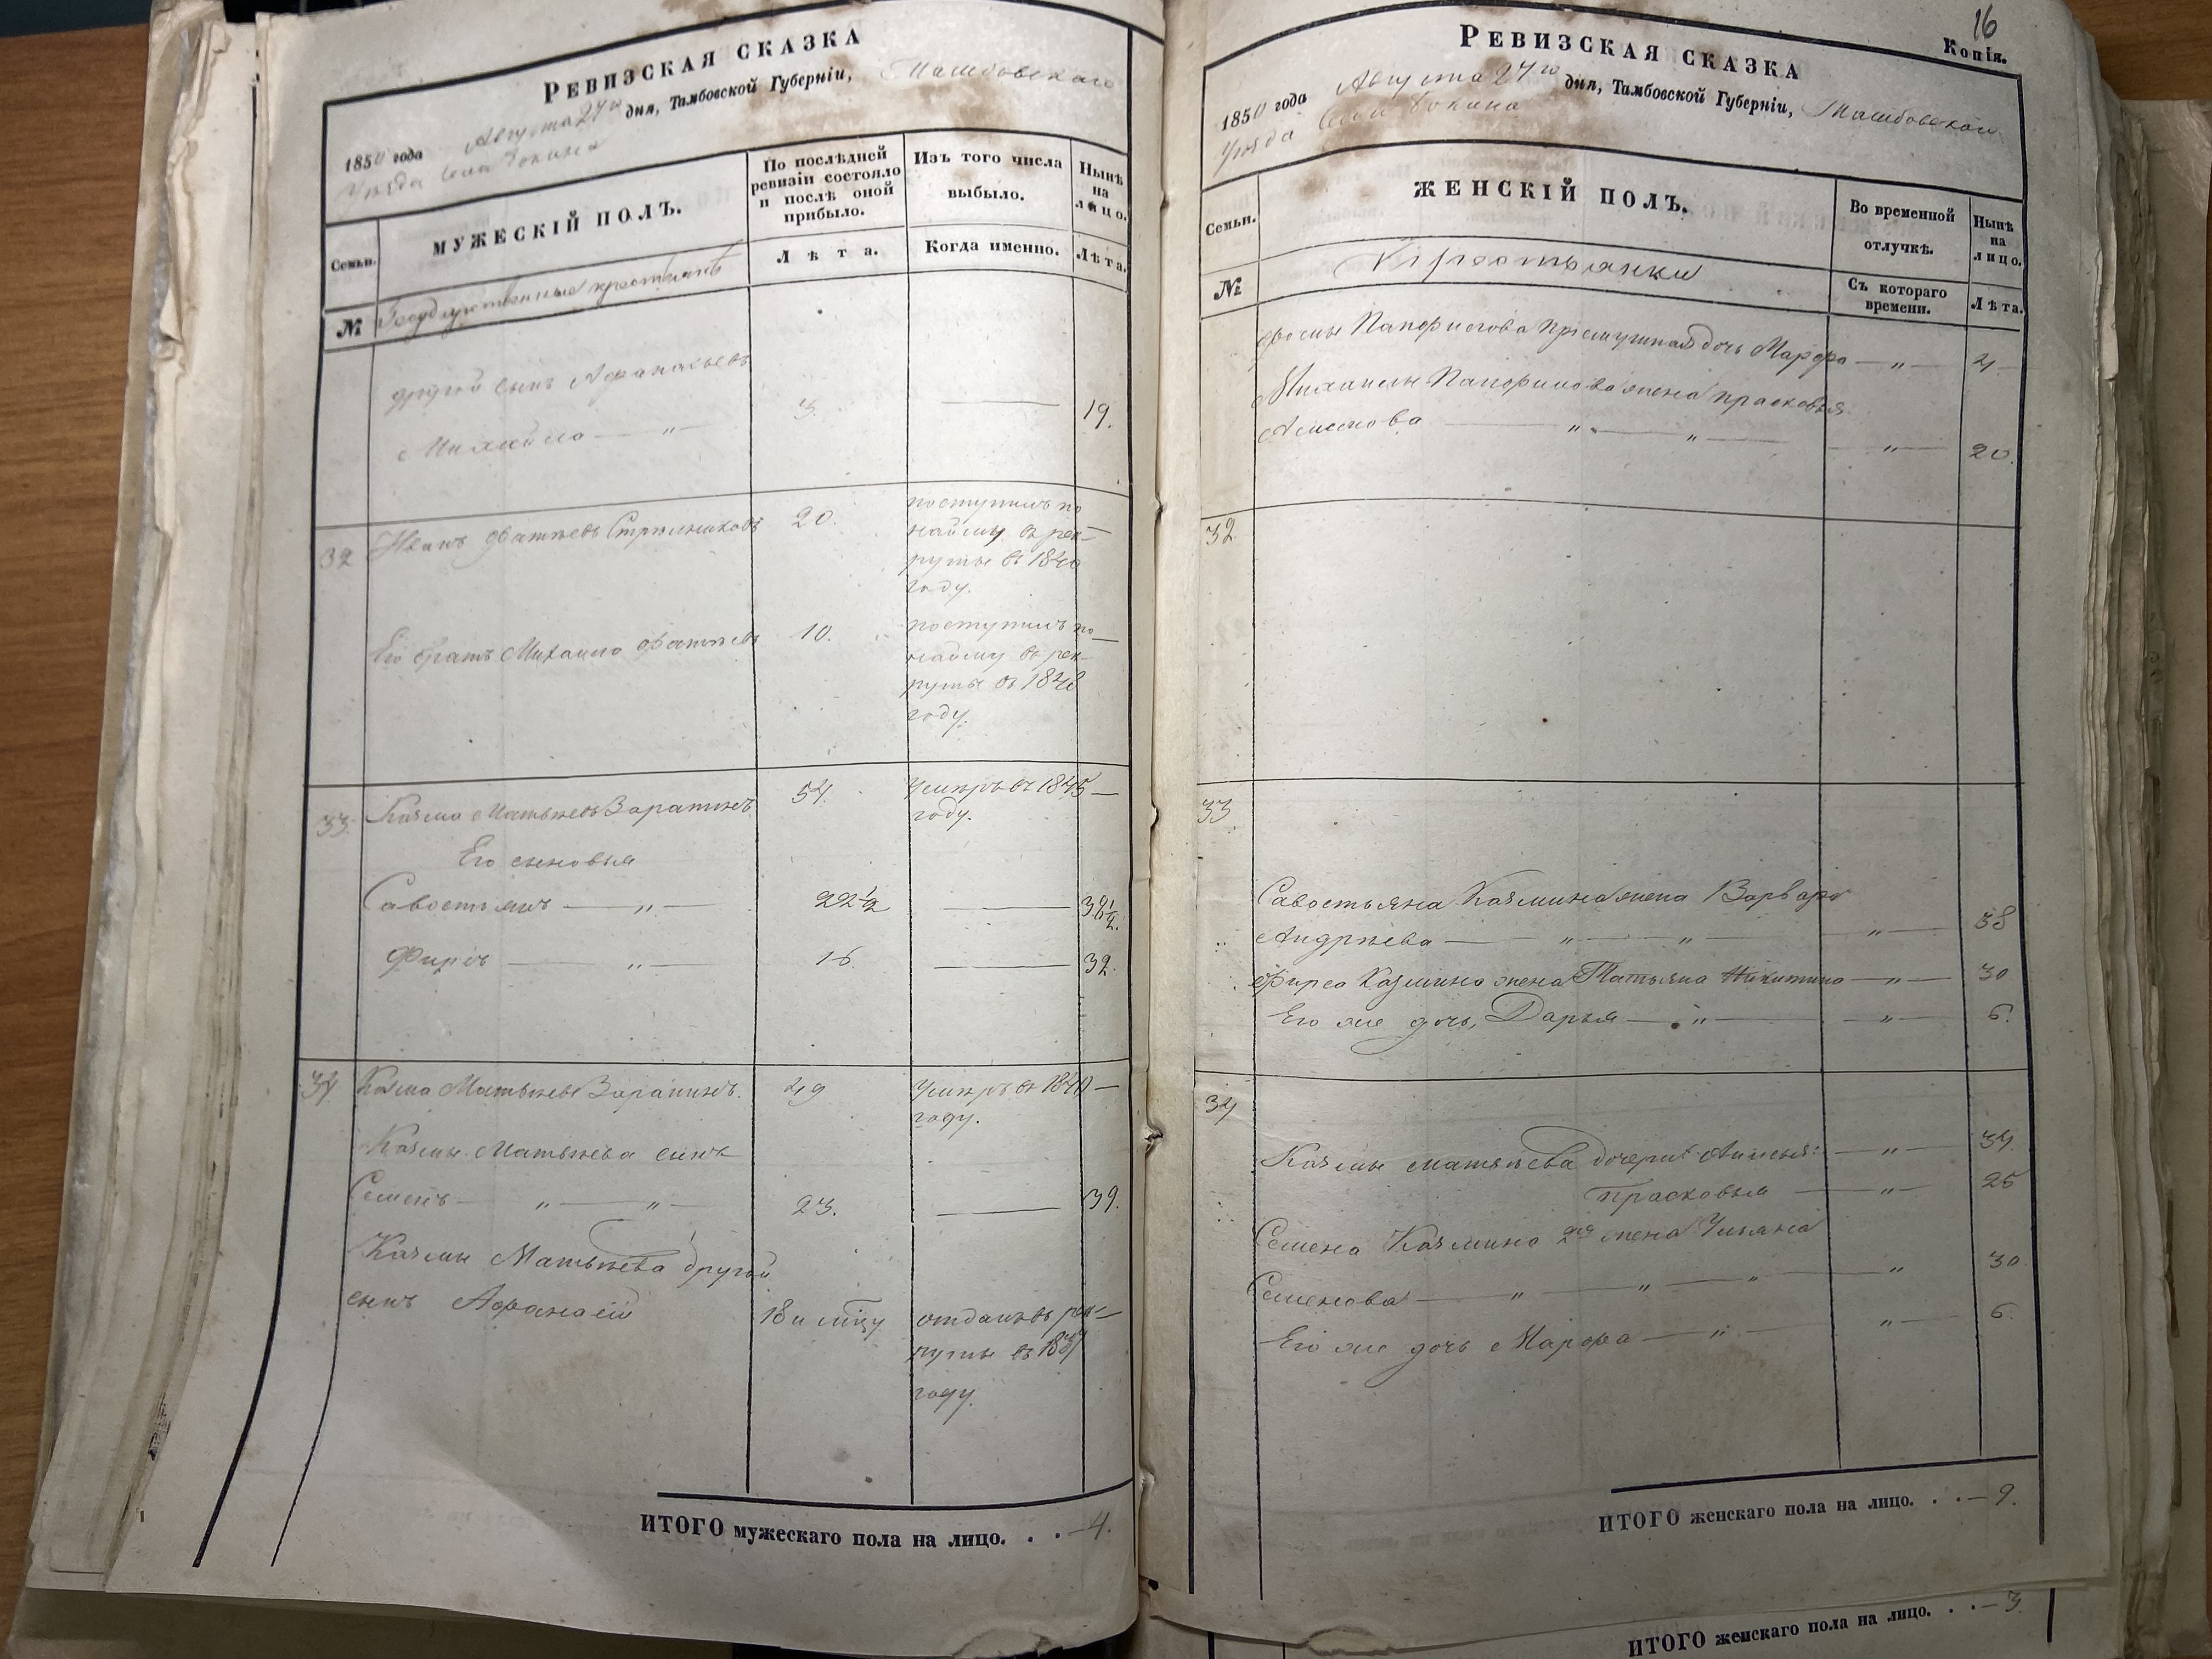 Ревизская сказка
1850 года Августа 27го дня, Тамбовской Губерніи, Тамбовскаго
Уѣзда Села
Семьи.
МУЖЕСКІЙ ПОЛЪ.
По послѣдней ревизіи состояло и послѣ оной прибыло.
Изъ того числа выбыло.
Нынѣ на лицо.
№
Государственные крестьяне
Лѣта.
Когда именно.
Лѣта.
другой сынъ Афанасьевъ
Михайло — „ — 3. — 19.
32 Иванъ Фатѣевъ Стрѣльниковъ 20. поступилъ по
найму въ рек-
руты въ 1840
году.
Его братъ Михайло Фатѣевъ 10. поступилъ по
найму въ рек-
руты въ 1848
году.
33. Казма Матвѣевъ 54. Умеръ въ 1845 —
году.
Его сыновья
Савостьянъ — „ — 22½ — 38½.
Фирсъ — „ — 16. — 32.
34 Казма Матвѣевъ 49 Умеръ въ —
году.
Казмы Матвѣева сынъ
Семенъ — „ — „ — 23. — 39.
Казмы Матвѣева другой
сынъ Афанасій 18 и мѣсяц отданъ въ рек-
руты въ
году.
ИТОГО мужескаго пола на лицо. . . — 4.
16
Копія.
Ревизская сказка
1850 года Августа 27го дня, Тамбовской Губерніи, Тамбовскаго
Уѣзда Села
Семьи.
ЖЕНСКІЙ ПОЛЪ.
Во временной отлучкѣ.
Нынѣ на лицо.
№
Крестьянки
Съ котораго времени.
Лѣта.
дочь Марфа — „ — 4
жена Прасковья
— „ — „ — „ — 20.
32.
33
Савостьяна Казмина жена Варвара
Андрѣева — „ — „ — „ — 38
Фирса Казмина жена Татьяна Никитина — „ — 30
Его же дочь, Дарья — „ — „ — 6.
34
Казмы Матвѣева дочери — „ — 34.
Прасковья — „ — 25
Семена Казмина 2я жена Ульяна
Семенова — „ — „ — „ — „ 30
Его же дочь Марфа — „ — „ — 6.
ИТОГО женскаго пола на лицо. . . — 9.
ИТОГО женскаго пола на лицо. . . — 3.